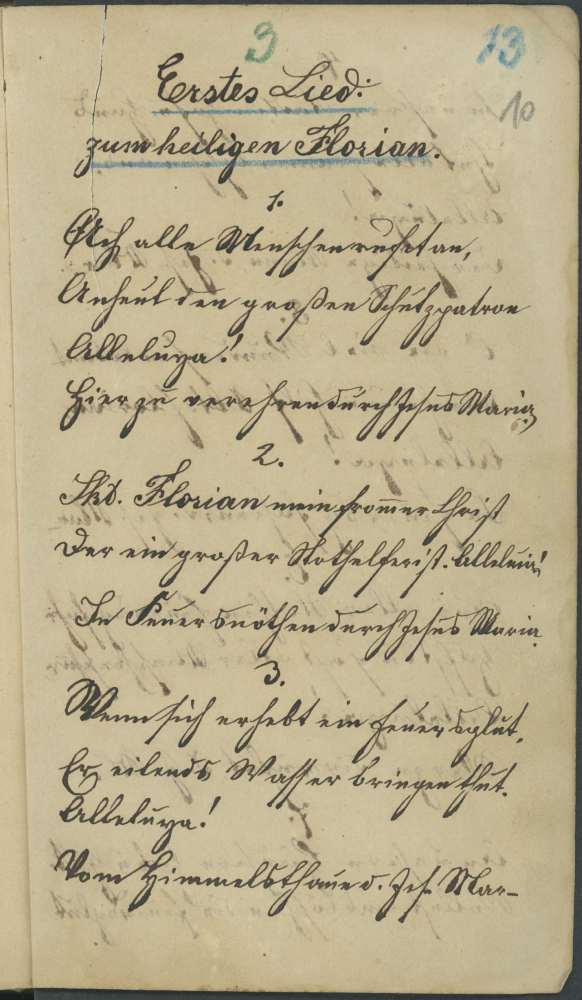 3 13
10
Erstes Lied:
zum heiligen Florian.
1.
Ach alle Menschen rufet an,
Anheut den großen Schutzpatron
Alleluya!
Hier zu verehren durch Jesus Maria,
2.
Skt. Florian mein frommer Christ
Der ein großer Nothelfer ist. Alleluia!
In Feuersnöthen durch Jesus Maria.
3.
Wenn sich erhebt ein Feuersglut,
Er eilends Wasser bringen thut.
Alleluya!
Vom Himmelsthaue d. Jes. Mar-